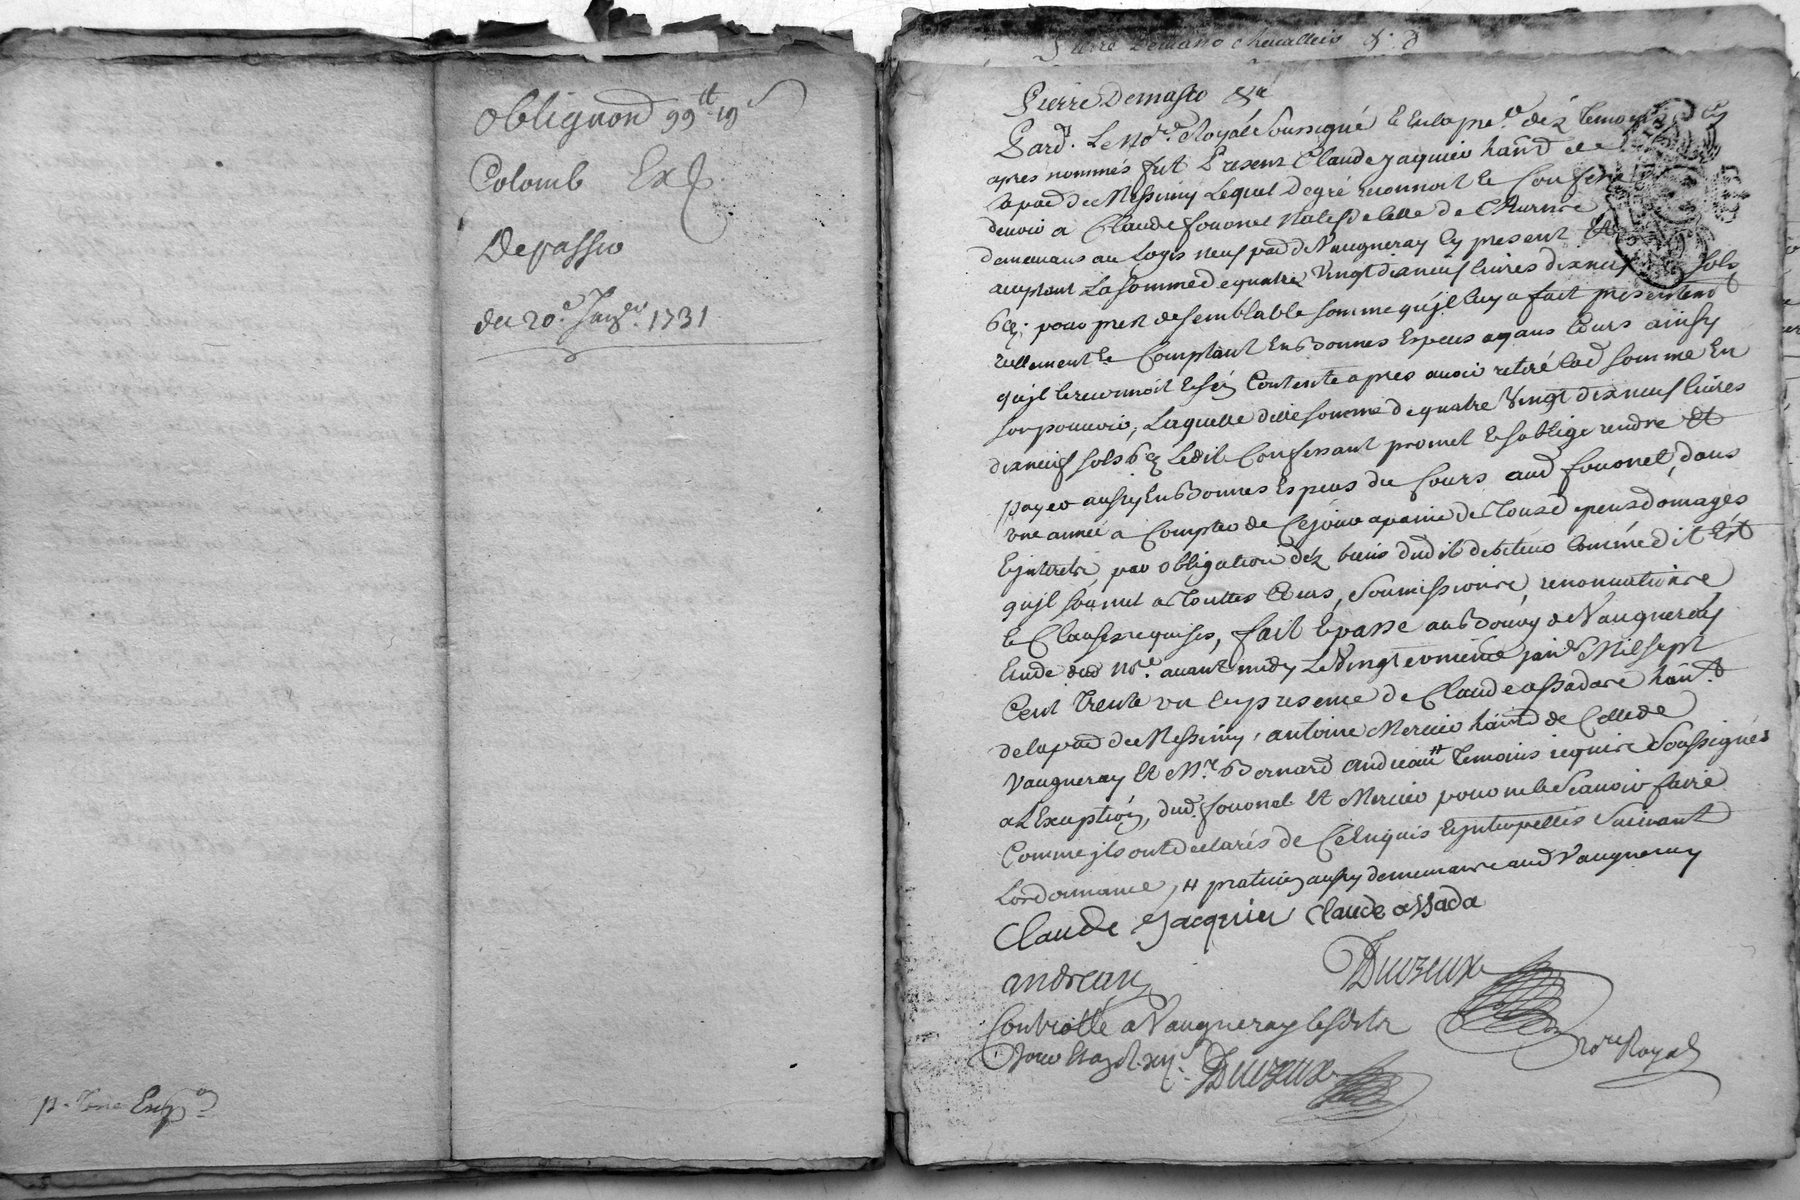 Obligaon 99tt 19s
Colomb Exp.
De passio
du 20e Janvr. 1731
p. Exp
Pierre Demasso Chevallier
Pierre Demasso &a
Pard. Le Nore Royal Soussigné & En la pnce des Temoins cy
apres nommés fut Present Claude Jaquier hant de
la pad de Messimy Lequel de gré reconnoit Et Confesse
devoir a Claude fouonel
demeurans au Logis neuf pad de Vaugneray Cy present Et
aceptant La somme de quatre Vingt dix neuf livres dix neuf sols
6d: pour prest de semblable somme qu'jl luy a fait presentemt
rellement Et Comptant En Bonnes Especes ayans Cours ainsy
qu'jl le reconnoit Contente apres avoir retiré lad somme En
son pouvoir, Laquelle ditte somme de quatre Vingt dix neuf livres
dix neuf sols 6d Ledit Confessant promet Et s'oblige rendre Et
payer aussy En Bonnes Especes du Cours aud fouonel, dans
une année a Compter de Ce jour a peine de Tous depens domages
Et jnterets, par obligation dez biens dudit debiteur Comme dit Est
qu'jl soumet a Touttes Cours, Soumissions, renonciations
Et Clauses requises, fait Et passé au Bourg de Vaugneray
Etude dud Nore avant midy Le Vingt eunieme janr Mil sept
Cent Trente un En presence de Claude assada hant
de la pad de Messimy, antoine Mercier hant de Celle de
Vaugneray Et Mr Bernard andreau tt Temoins requis Soussignés
a L'Exception, dud fouonel Et Mercier pour ne le Scavoir faire
Comme jls ont declarés de Ce Enquis Et jnterpellés Suivant
Lordonnance, tt praticien aussy demeurant aud Vaugneray
Claude Jacquier Claude assada
andreau
Duvzeux
Nore Royal
Controllé a Vaugneray lesdits
Jour Et an
Duvzeux